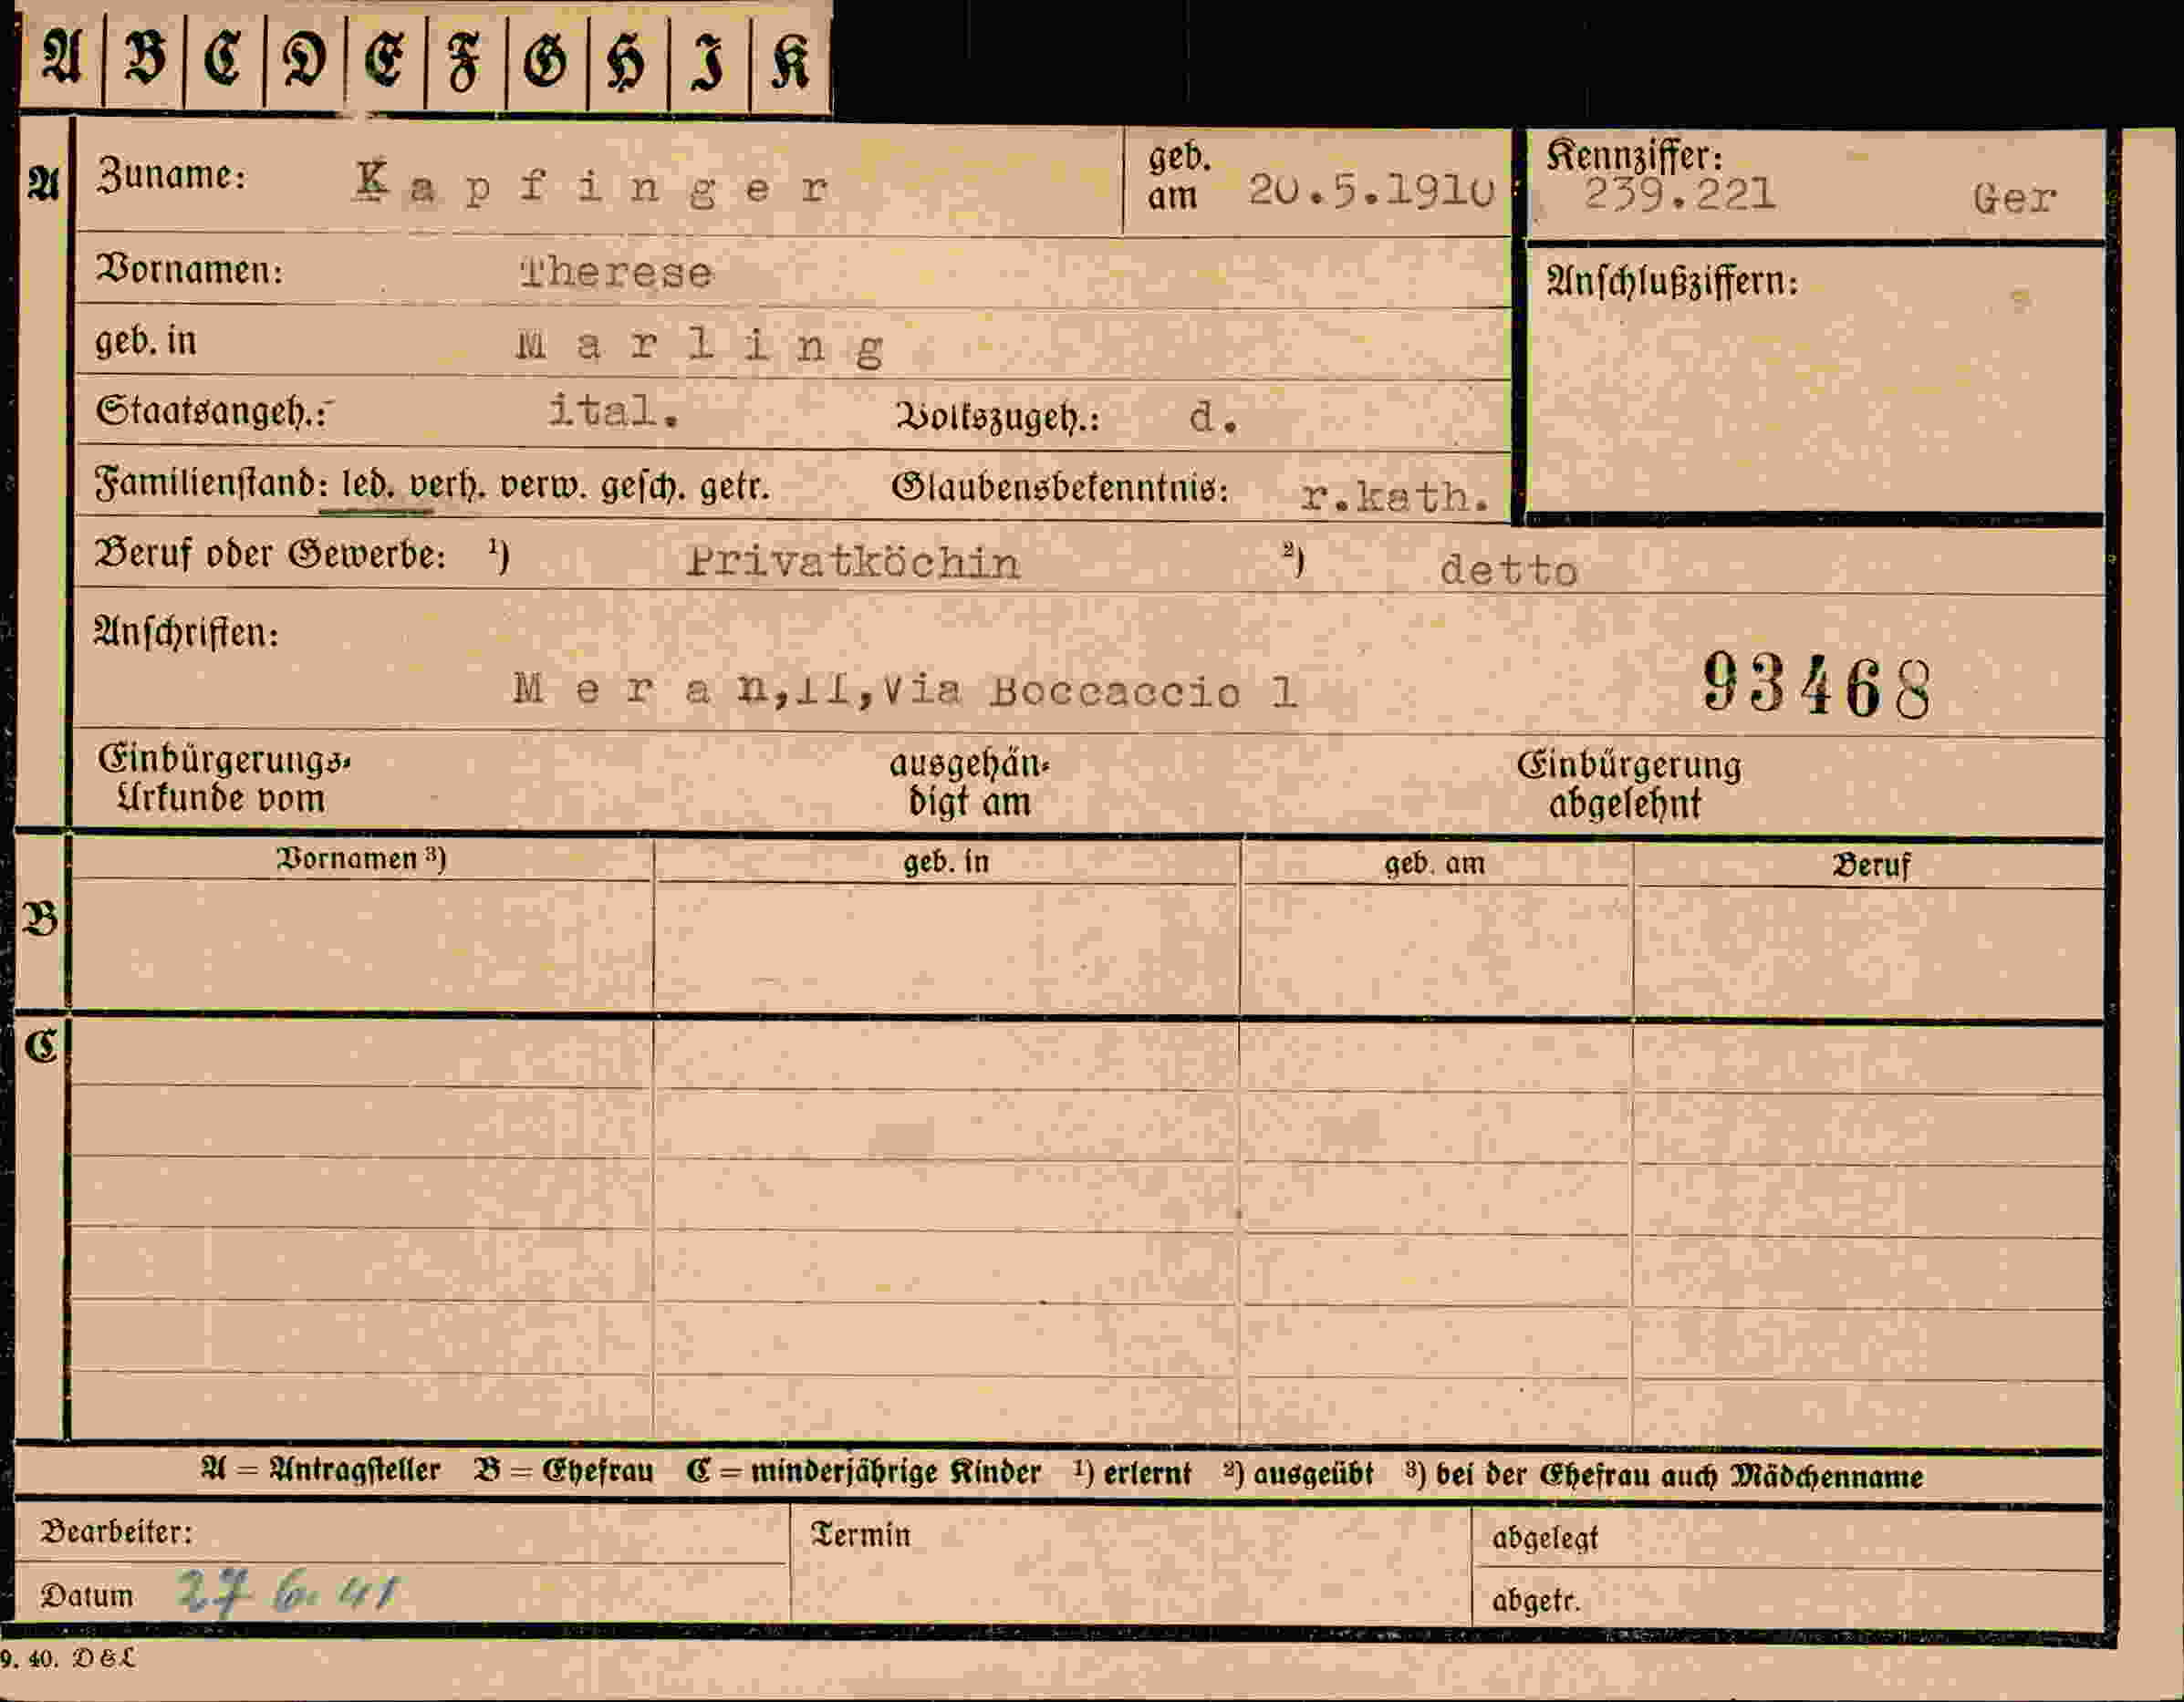 A B C D E F G H I K
A Zuname: Kapfinger geb. am 20.5.1910 Kennziffer: 239.221 Ger
Vornamen: Therese Anschlußziffern:
geb. in Marling
Staatsangeh.: ital. Volkszugeh.: d.
Familienstand: led. verh. verw. gesch. getr. Glaubensbekenntnis: r.kath.
Beruf oder Gewerbe: 1) Privatköchin 2) detto
Anschriften:
Meran,II,Via Boccaccio 1 93468
Einbürgerungs- ausgehän- Einbürgerung
Urkunde vom digt am abgelehnt
Vornamen 3) geb. in geb. am Beruf
B
C
A = Antragsteller B = Ehefrau C = minderjährige Kinder 1) erlernt 2) ausgeübt 3) bei der Ehefrau auch Mädchenname
Bearbeiter: Termin abgelegt
Datum 27 6. 41 abgetr.
9. 40. D&L